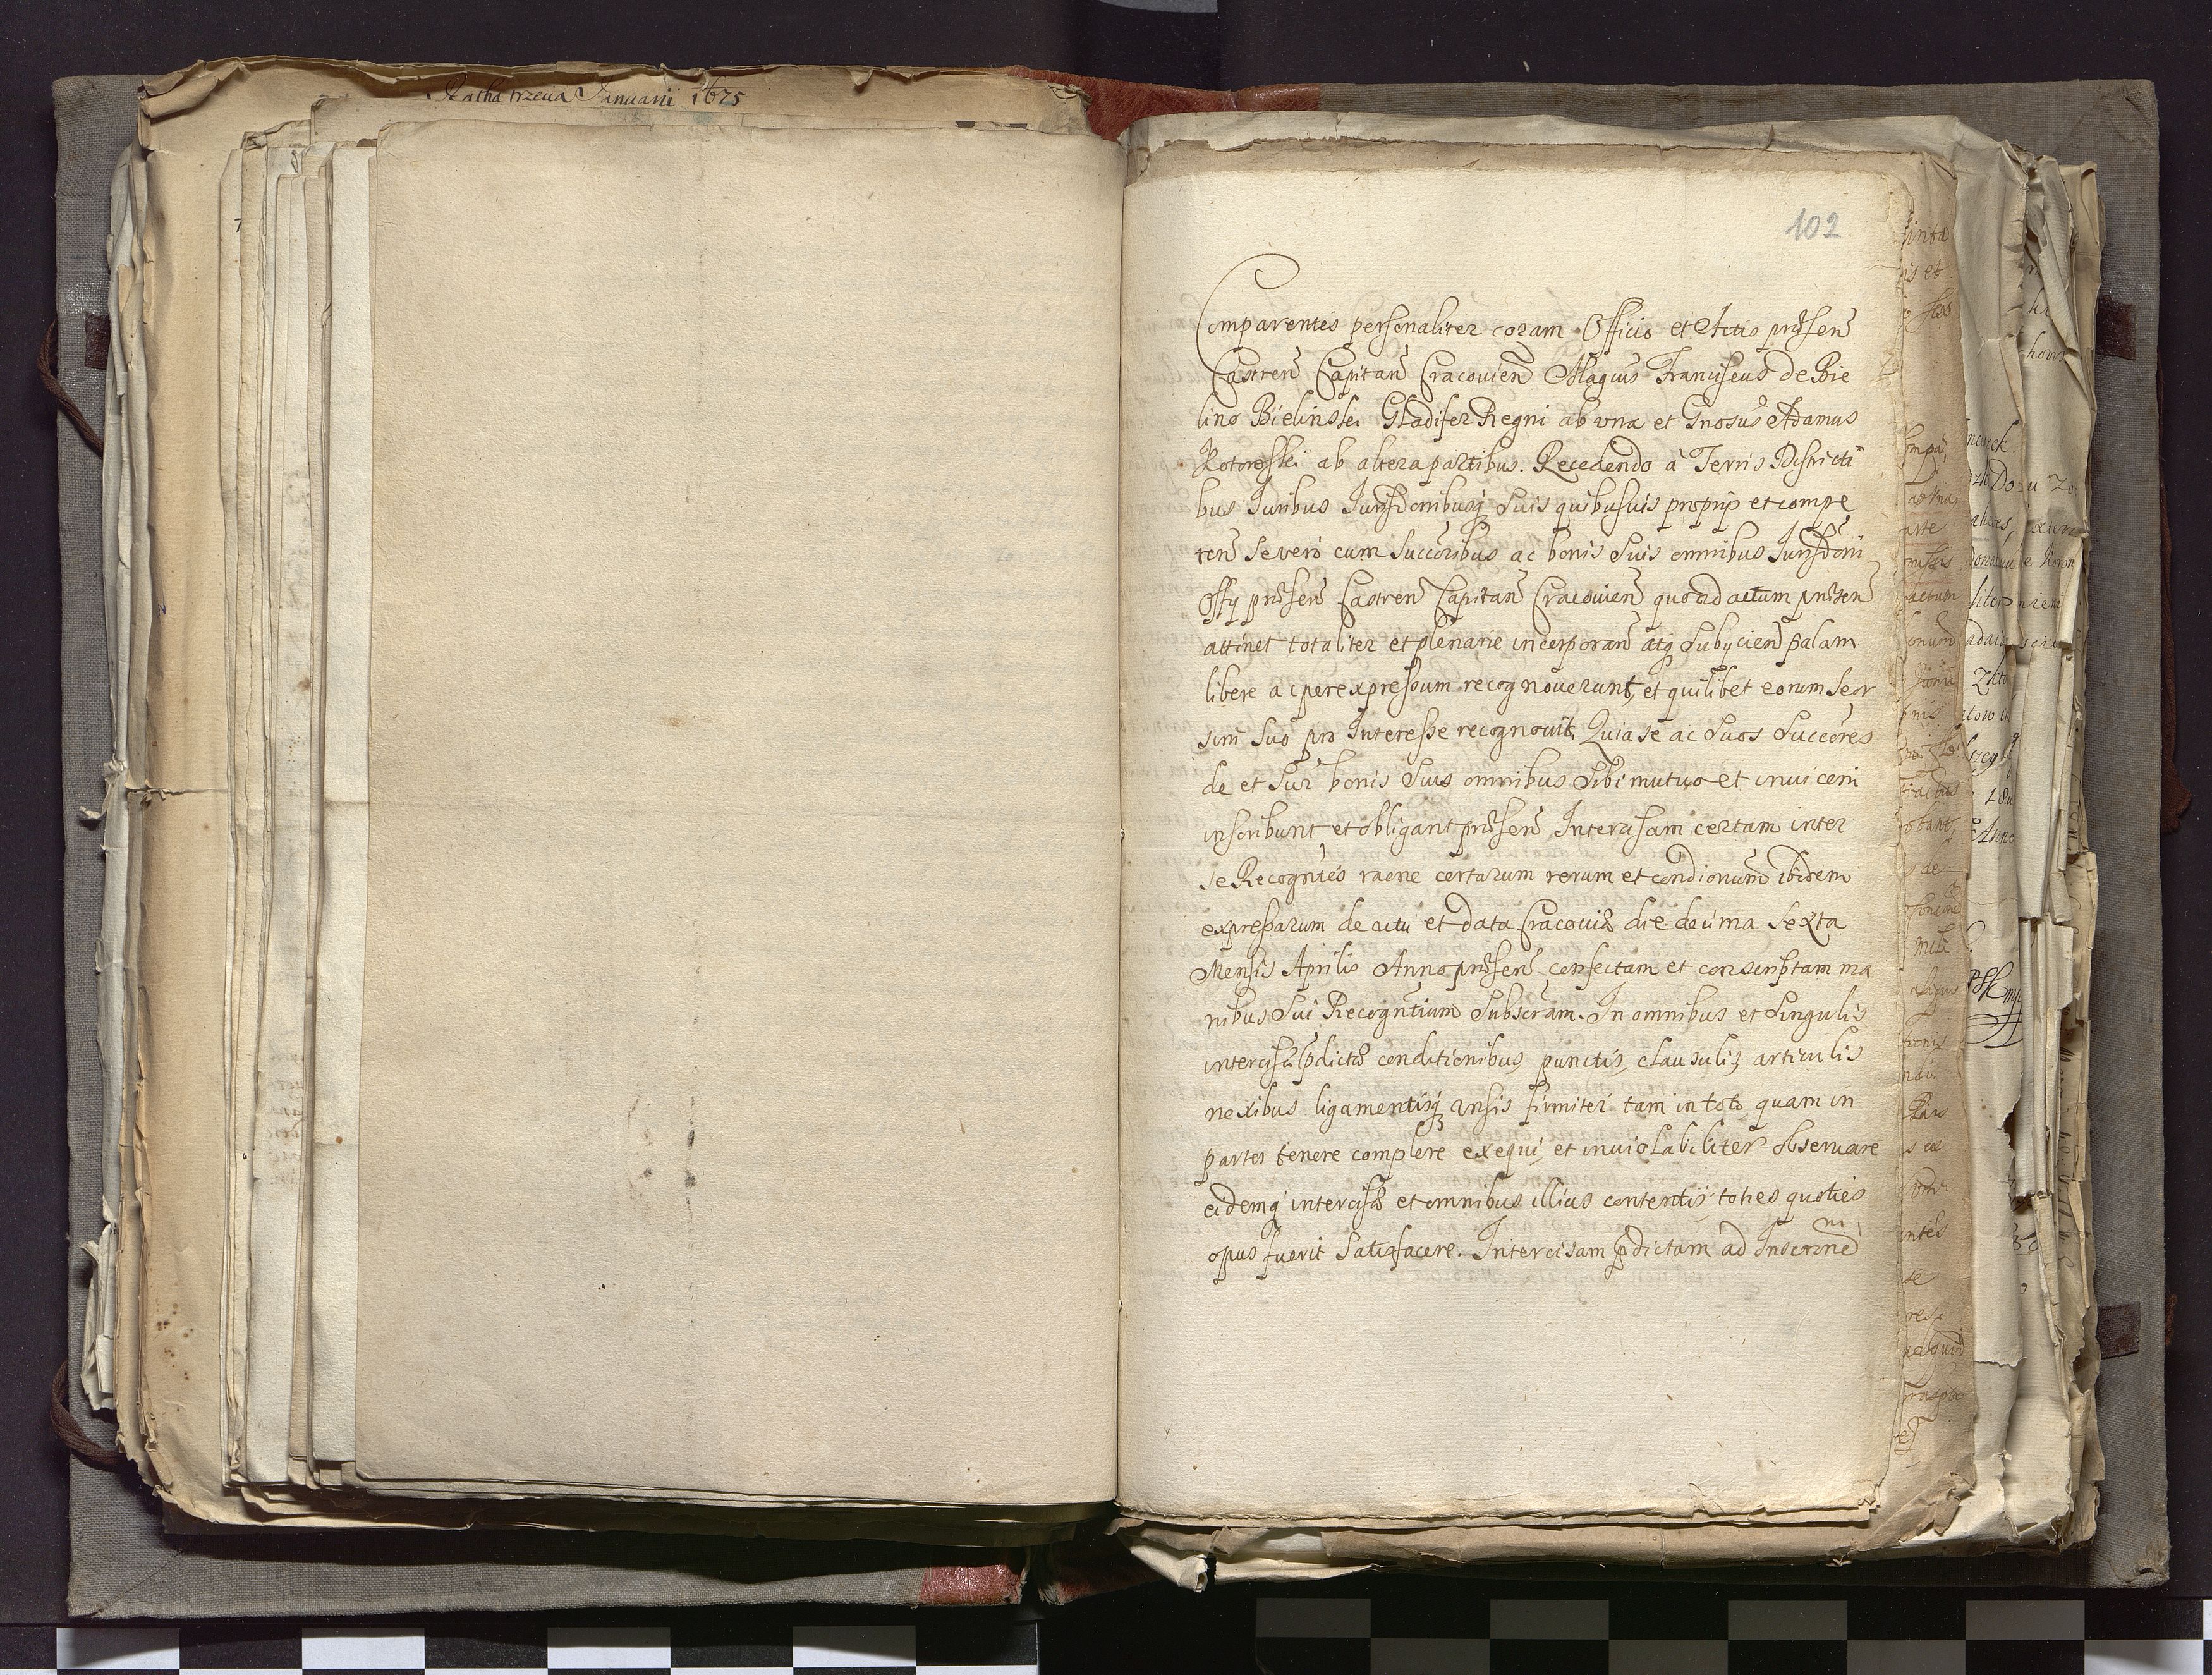 Januarii 1675
102
Comparentes personaliter coram Officio et Actis pnrsen̄
Castren̄ Capitan̄ Cracouien̄ Magcus Franciscus de Bie
lino Bielinski Gladifer Regni ab una et Gnosus Adamus
Kotowski ab altera partibus. Recedendo à Terris Districti
bus Juribus Jurisdonibusq suis quibusuis proprijs et compe
ten̄ se vero cum Succoribus ac bonis Suis omnibus Jurisdoni
Offij pnrsen̄ Castren̄ Capitan̄ Cracouien̄ quo ad actum pnrsen̄
attinet totaliter et plenarie incorporan̄ atq Subijcien̄ palam
libere ac per expressum recognouerunt, et quilibet eorum Seor
sim Suo pro Interesse recognouit. Quia se ac Suos Succores
de et Supr bonis Suis omnibus Sibi mutuo et inuicem
inscribunt et obligant pnrsen̄ Intercisam certam inter
se Recogntes raone certarum rerum et condionum ibidem
expressarum de actu et data Cracouiæ die decima Sexta
Mensis Aprilis Anno pnrsen̄ confectam et conscriptam ma
nibus Sui Recogntium Subscram. In omnibus et Singulis
intercisæ pdictæ conditionibus, punctis, clausulis, articulis
nexibus ligamentisq ipsis firmiter tam in toto quam in
partes tenere complere exequi, et inuiolabiliter obseruare
eidemq intercisæ et omnibus illius contentis toties quoties
opus fuerit Satisfacere. Intercisam pdictam ad